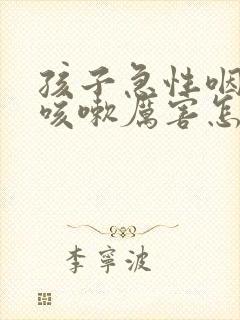 孩子急性咽
咳嗽厲害怎
李寧波